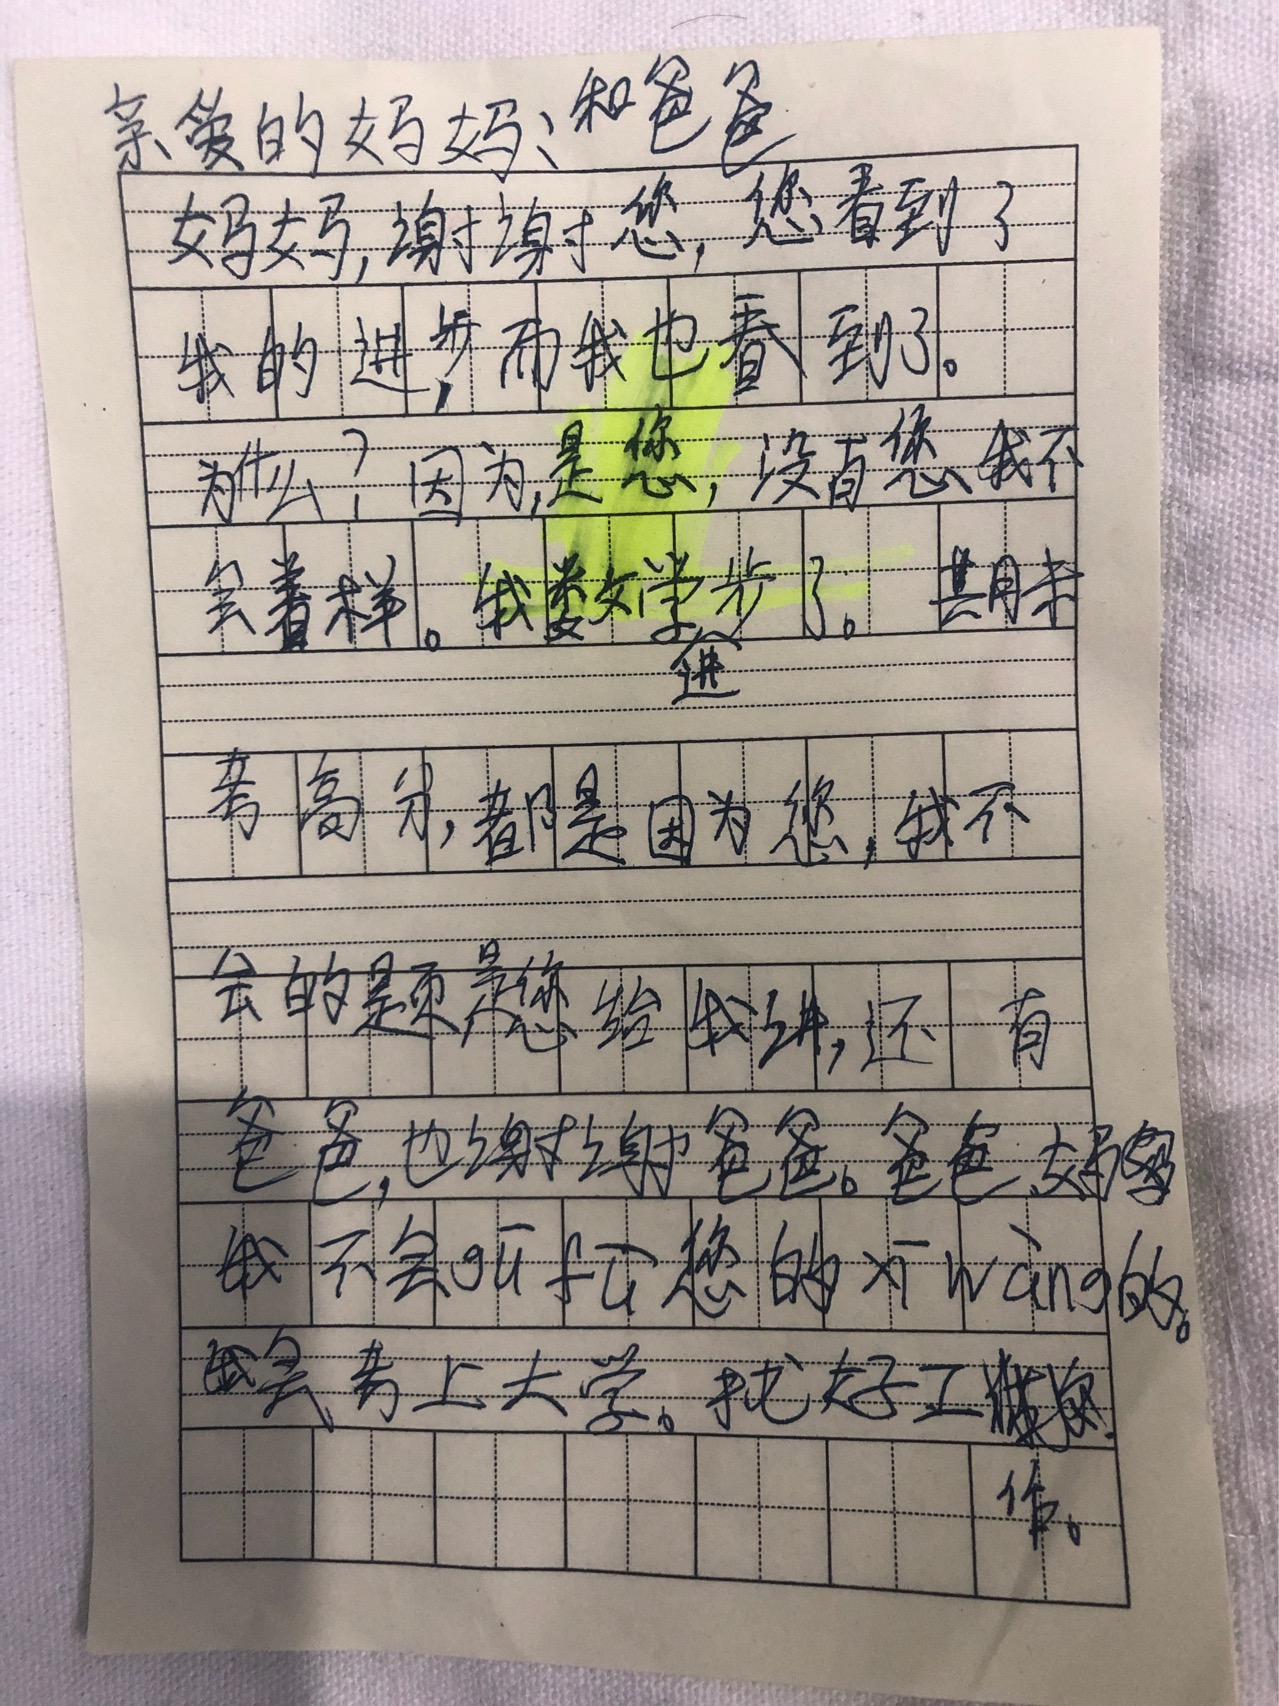 亲爱的妈妈、和爸爸
妈妈,谢谢您,您看到了
我的进步,而我也看到了。
为什么?因为,是您,没有您,我不
会着样。我数学步了。其月末
进
考高分,都是因为您,我不
会的题是您给我讲,还有
爸爸,也谢谢爸爸。爸爸、妈
我不会gū fū您的xī wàng的。
我会考上大学。找好工
作。